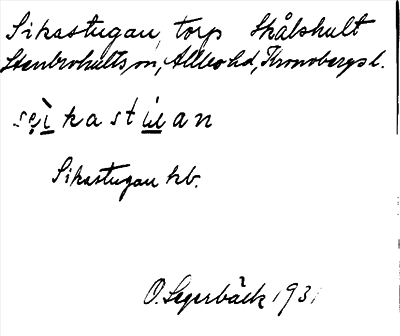 Sikastugan, torp Skålshult
Stenbrohults sn, Allbo hd, Kronobergs l.
sẹìkastu̲an
Sikastugan kb.
O. Segerbäck 1931